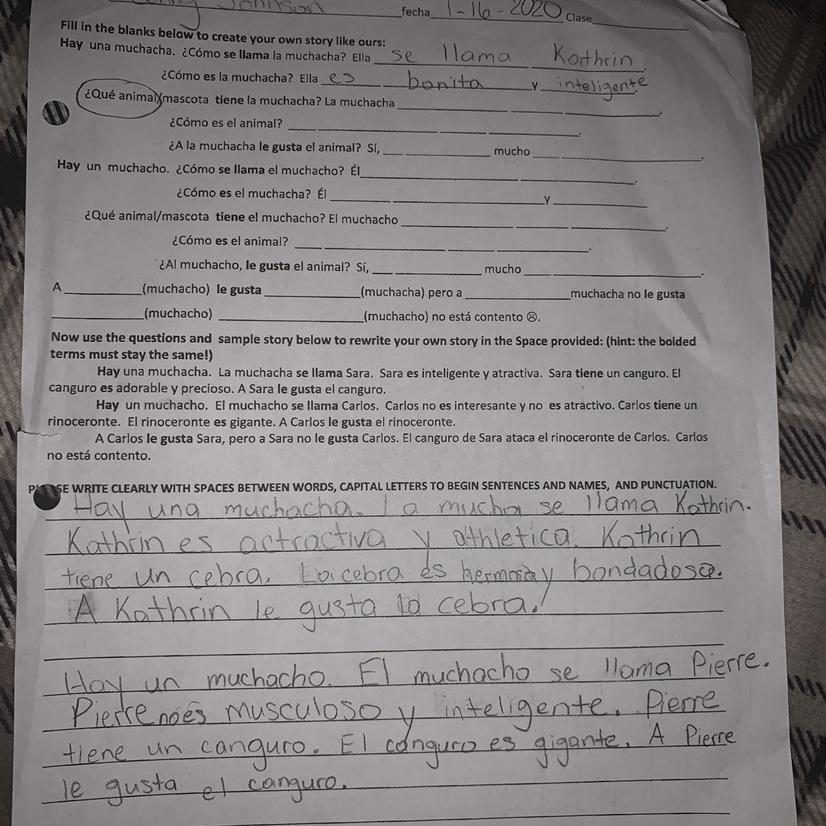 Johnson fecha 1-16-2020 Clase
Fill in the blanks below to create your own story like ours:
Hay una muchacha. ¿Cómo se llama la muchacha? Ella se llama Kathrin.
¿Cómo es la muchacha? Ella es bonita y inteligente.
¿Qué animal/mascota tiene la muchacha? La muchacha ____ ____ ____.
¿Cómo es el animal? ____ ____ ____ ____.
¿A la muchacha le gusta el animal? Sí, ____ ____ mucho ____ ____.
Hay un muchacho. ¿Cómo se llama el muchacho? Él____ ____ ____.
¿Cómo es el muchacha? Él ____ ____y ____
¿Qué animal/mascota tiene el muchacho? El muchacho ____ ____ ____.
¿Cómo es el animal? ____ ____ ____ ____.
¿Al muchacho, le gusta el animal? Sí, ____ ____ mucho ____ ____.
A ____(muchacho) le gusta ____(muchacha) pero a ____muchacha no le gusta
____(muchacho) ____(muchacho) no está contento ☹.
Now use the questions and sample story below to rewrite your own story in the Space provided: (hint: the bolded
terms must stay the same!)
Hay una muchacha. La muchacha se llama Sara. Sara es inteligente y atractiva. Sara tiene un canguro. El
canguro es adorable y precioso. A Sara le gusta el canguro.
Hay un muchacho. El muchacho se llama Carlos. Carlos no es interesante y no es atractivo. Carlos tiene un
rinoceronte. El rinoceronte es gigante. A Carlos le gusta el rinoceronte.
A Carlos le gusta Sara, pero a Sara no le gusta Carlos. El canguro de Sara ataca el rinoceronte de Carlos. Carlos
no está contento.
WRITE CLEARLY WITH SPACES BETWEEN WORDS, CAPITAL LETTERS TO BEGIN SENTENCES AND NAMES, AND PUNCTUATION.
Hay una muchacha. La mucha se llama Kathrin.
Kathrin es actractiva y athletica. Kathrin
tiene un cebra. La cebra es hermosa y bondadosa.
A Kathrin le gusta la cebra.
Hay un muchacho. El muchacho se llama Pierre.
Pierre no es musculoso y inteligente. Pierre
tiene un canguro. El canguro es gigante. A Pierre
le gusta el canguro.